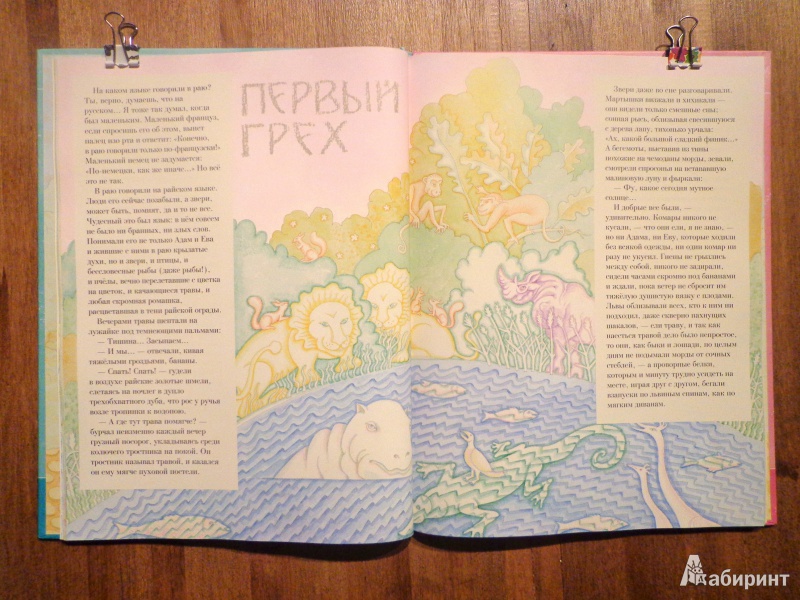 ПЕРВЫЙ
ГРЕХ
На каком языке говорили в раю?
Ты, верно, думаешь, что на
русском... Я тоже так думал, когда
был маленьким. Маленький француз,
если спросишь его об этом, вынет
палец изо рта и ответит: «Конечно,
в раю говорили только по-французски!»
Маленький немец не задумается:
«По-немецки, как же иначе...» Но всё
это не так.
В раю говорили на райском языке.
Люди его сейчас позабыли, а звери,
может быть, помнят, да и то не все.
Чудесный это был язык: в нём совсем
не было ни бранных, ни злых слов.
Понимали его не только Адам и Ева
и жившие с ними в раю крылатые
духи, но и звери, и птицы, и
бессловесные рыбы (даже рыбы!),
и пчёлы, вечно перелетавшие с цветка
на цветок, и качающиеся травы, и
любая скромная ромашка,
расцветавшая в тени райской ограды.
Вечерами травы шептали на
лужайке под темнеющими пальмами:
— Тишина... Засыпаем...
— И мы... — отвечали, кивая
тяжёлыми гроздьями, бананы.
— Спать! Спать! — гудели
в воздухе райские золотые шмели,
слетаясь на ночлег в дупло
трехобхватного дуба, что рос у ручья
возле тропинки к водопою.
— А где тут трава помягче? —
бурчал неизменно каждый вечер
грузный носорог, укладываясь среди
колючего тростника на покой. Он
тростник называл травой, и казался
он ему мягче пуховой постели.
Звери даже во сне разговаривали.
Мартышки визжали и хихикали —
они видели только смешные сны;
сонная рысь, облизывая свесившуюся
с дерева лапу, тихонько урчала:
«Ах, какой большой сладкий финик...»
А бегемоты, выставив из тины
похожие на чемоданы морды, зевали,
смотрели спросонья на встававшую
малиновую луну и фыркали:
— Фу, какое сегодня мутное
солнце...
И добрые все были, —
удивительно. Комары никого не
кусали, — что они ели, я не знаю, —
но ни Адама, ни Еву, которые ходили
без всякой одежды, ни один комар ни
разу не укусил. Гиены не грызлись
между собой, никого не задирали,
сидели часами скромно под бананами
и ждали, пока ветер не сбросит им
тяжёлую душистую кисть с плодами.
Львы облизывали всех, кто к ним ни
подходил, даже скверно пахнущих
шакалов, — ели траву, и так как
наесться травой дело было непростое,
то они, как быки и лошади, по целым
дням не подымали морды от сочных
стеблей, — а проворные белки,
которым и минуту трудно усидеть на
месте, играя друг с другом, бегали
взапуски по львиным спинам, как по
мягким диванам.
Лабиринт